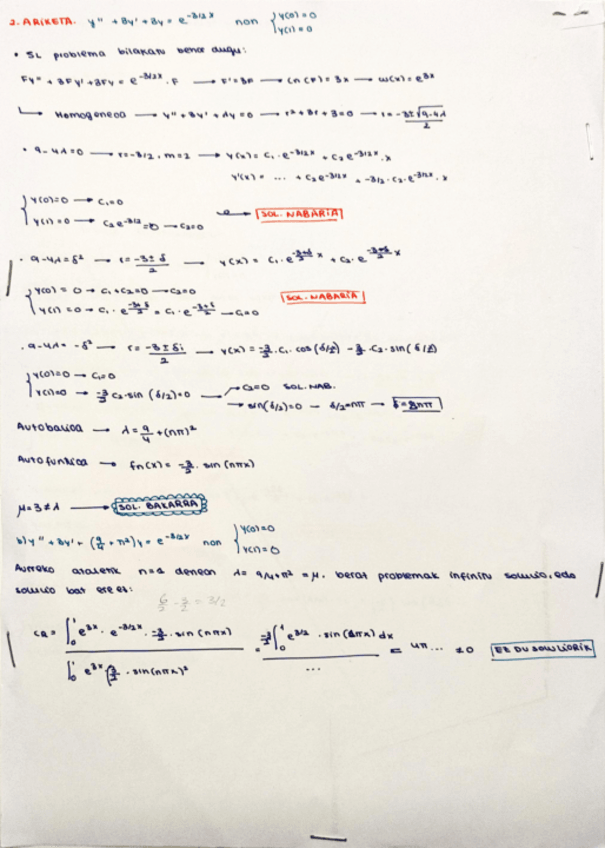 2. ARIKETA. y'' + 3y' + 3y = e^-3/2x non { y(0)=0
y(1)=0
• SL problema bilakatu behar dugu:
Fy'' + 3Fy' + 3Fy = e^-3/2x · F → F'=3F → ln(F) = 3x → w(x) = e^3x
↳ Homogeneoa → y'' + 3y' + λy = 0 → r² + 3r + 3 = 0 → r = -3±√9-4λ / 2
• 9-4λ=0 → r=-3/2, m=2 → y(x) = c₁ · e^-3/2x + c₂ e^-3/2x · x
y'(x) = ... + c₂ e^-3/2x + -3/2 · c₂ · e^-3/2x · x
{ y(0)=0 → c₁=0
y(1)=0 → c₂ e^-3/2 = 0 → c₂=0 → SOL. NABARIA
• 9-4λ=δ² → r = -3±δ / 2 → y(x) = c₁ · e^(-3+δ)/2 x + c₂ · e^(-3+δ)/2 x
{ y(0) = 0 → c₁+c₂=0 → c₂=0 SOL. NABARIA
y(1) = 0 → c₁ · e^(-3+δ)/2 = c₁ · e^(-3+δ)/2 → c₁=0
• 9-4λ = -δ² → r = -3±δi / 2 → y(x) = -3/2 · c₁ · cos(δ/2) -3/2 · c₂ · sin(δ/2)
{ y(0)=0 → c₁=0
y(1)=0 → -3/2 c₂ · sin(δ/2)=0 → c₂=0 SOL. NAB.
→ sin(δ/2)=0 - δ/2=nπ → δ=2nπ
Autobalioa → λ = 9/4 + (nπ)²
Autofuntzioa → fn(x) = -3/2 · sin(nπx)
μ=3≠λ → SOL. BAKARRA
b) y'' + 3y' + (9/4 + π²)y = e^-3/2x non { y(0)=0
y(1)=0
Aurreko ataletik n=1 denean λ = 9/4+π² = μ. beraz problemak infinitu soluzio, edo
soluzio bat ere ez:
6/2 · 3/2 = 3/2
ca = ∫₀¹ e^3x · e^-3/2x · -3/2 · sin(nπx) / ∫₀¹ e^3x (-3/2 · sin(nπx))² = -3/2 ∫₀¹ e^3/2 · sin(1πx) dx / ... = 4π... ≠0 EZ DU SOLUZIORIK